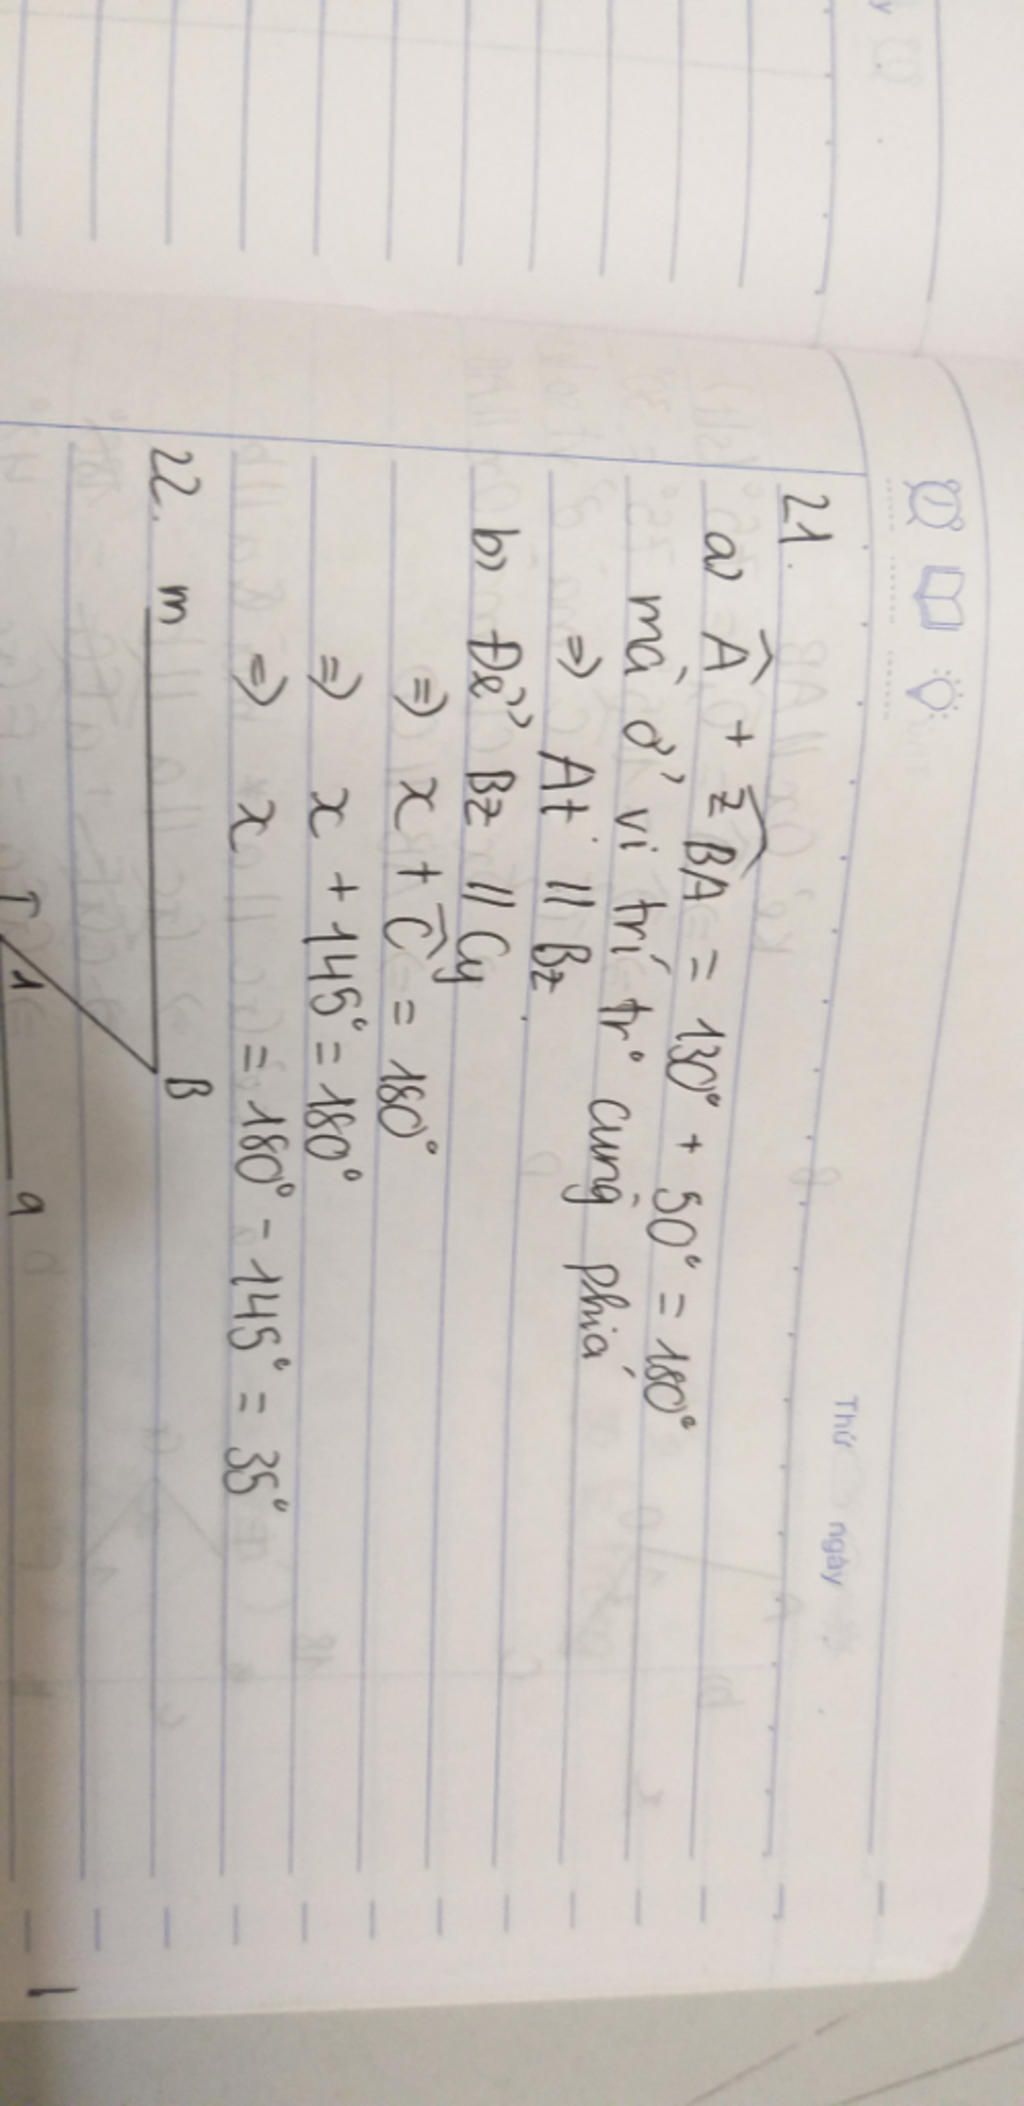 Thứ ngày
21.
a) Â + zBA = 130° + 50° = 180°
mà ở vị trí tr° cùng phía
=> At // Bz
b) Để Bz // Cy
=> x + Ĉ = 180°
=> x + 145° = 180°
=> x = 180° - 145° = 35°
22. m B
1 a